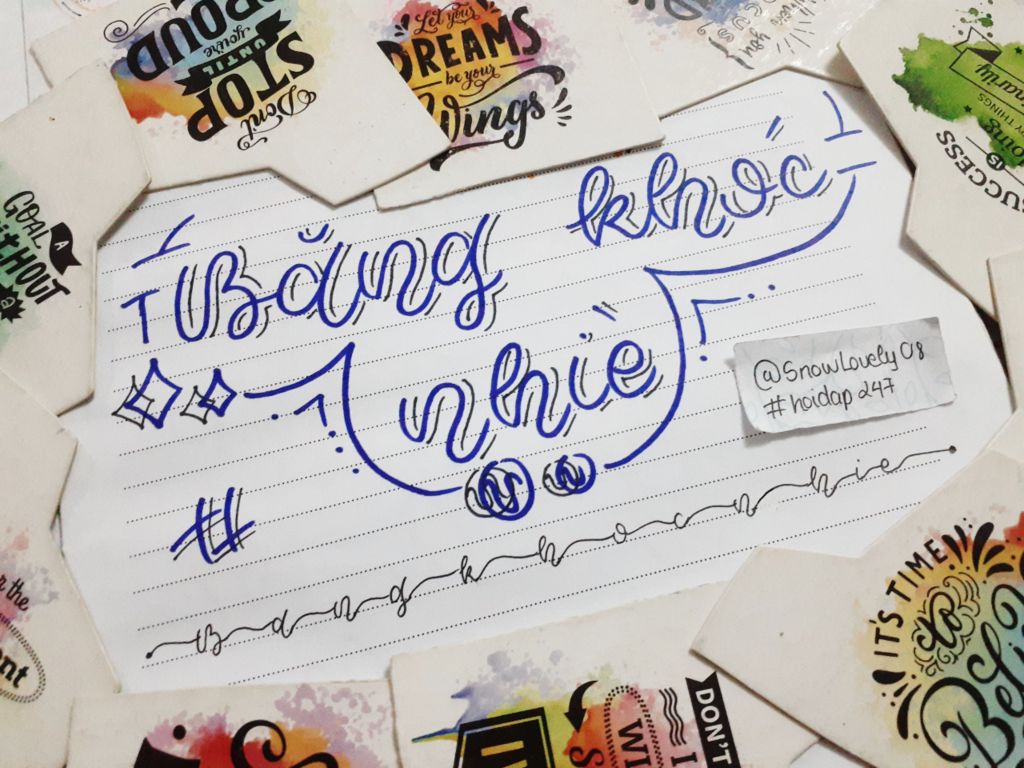 PROUD
you're
UNTIL
STOP
Don't
Let your
DREAMS
be your
Wings
you
THINGS
SUCCESS
GOAL
A
WITHOUT
Băng khóc
nhiè
@SnowLovely08
#hoidap247
#
Bangkhocnhie
r the
IT'S TIME
TO
DON'T